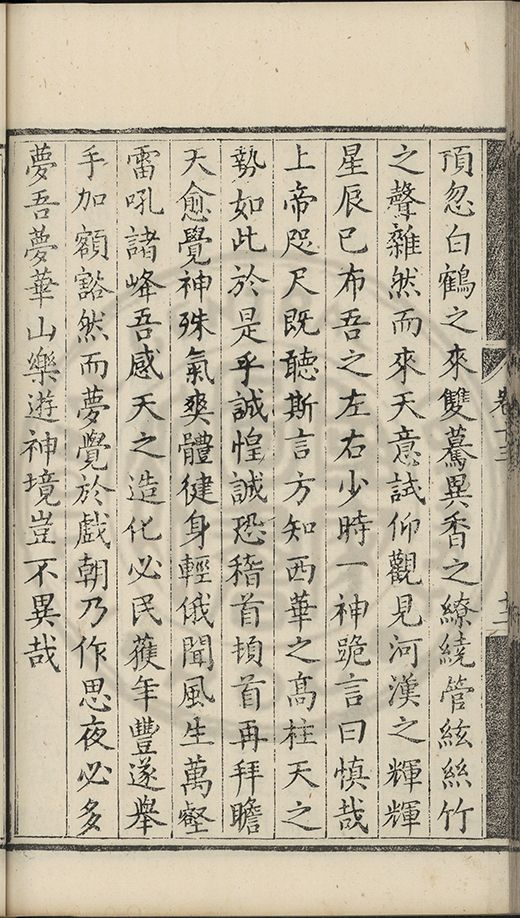 頂忽白鶴之來雙驀異香之繚繞管絃絲竹
之聲雜然而來天意試仰觀見河漢之輝輝
星辰已布吾之左右少時一神跪言曰慎哉
上帝咫尺既聽斯言方知西華之高柱天之
勢如此於是乎誠惶誠恐稽首頓首再拜瞻
天愈覺神殊氣爽體健身輕俄聞風生萬壑
雷吼諸峰吾感天之造化必民獲年豐遂舉
手加額豁然而夢覺於戲朝乃作思夜必多
夢吾夢華山樂遊神境豈不異哉
卷十三